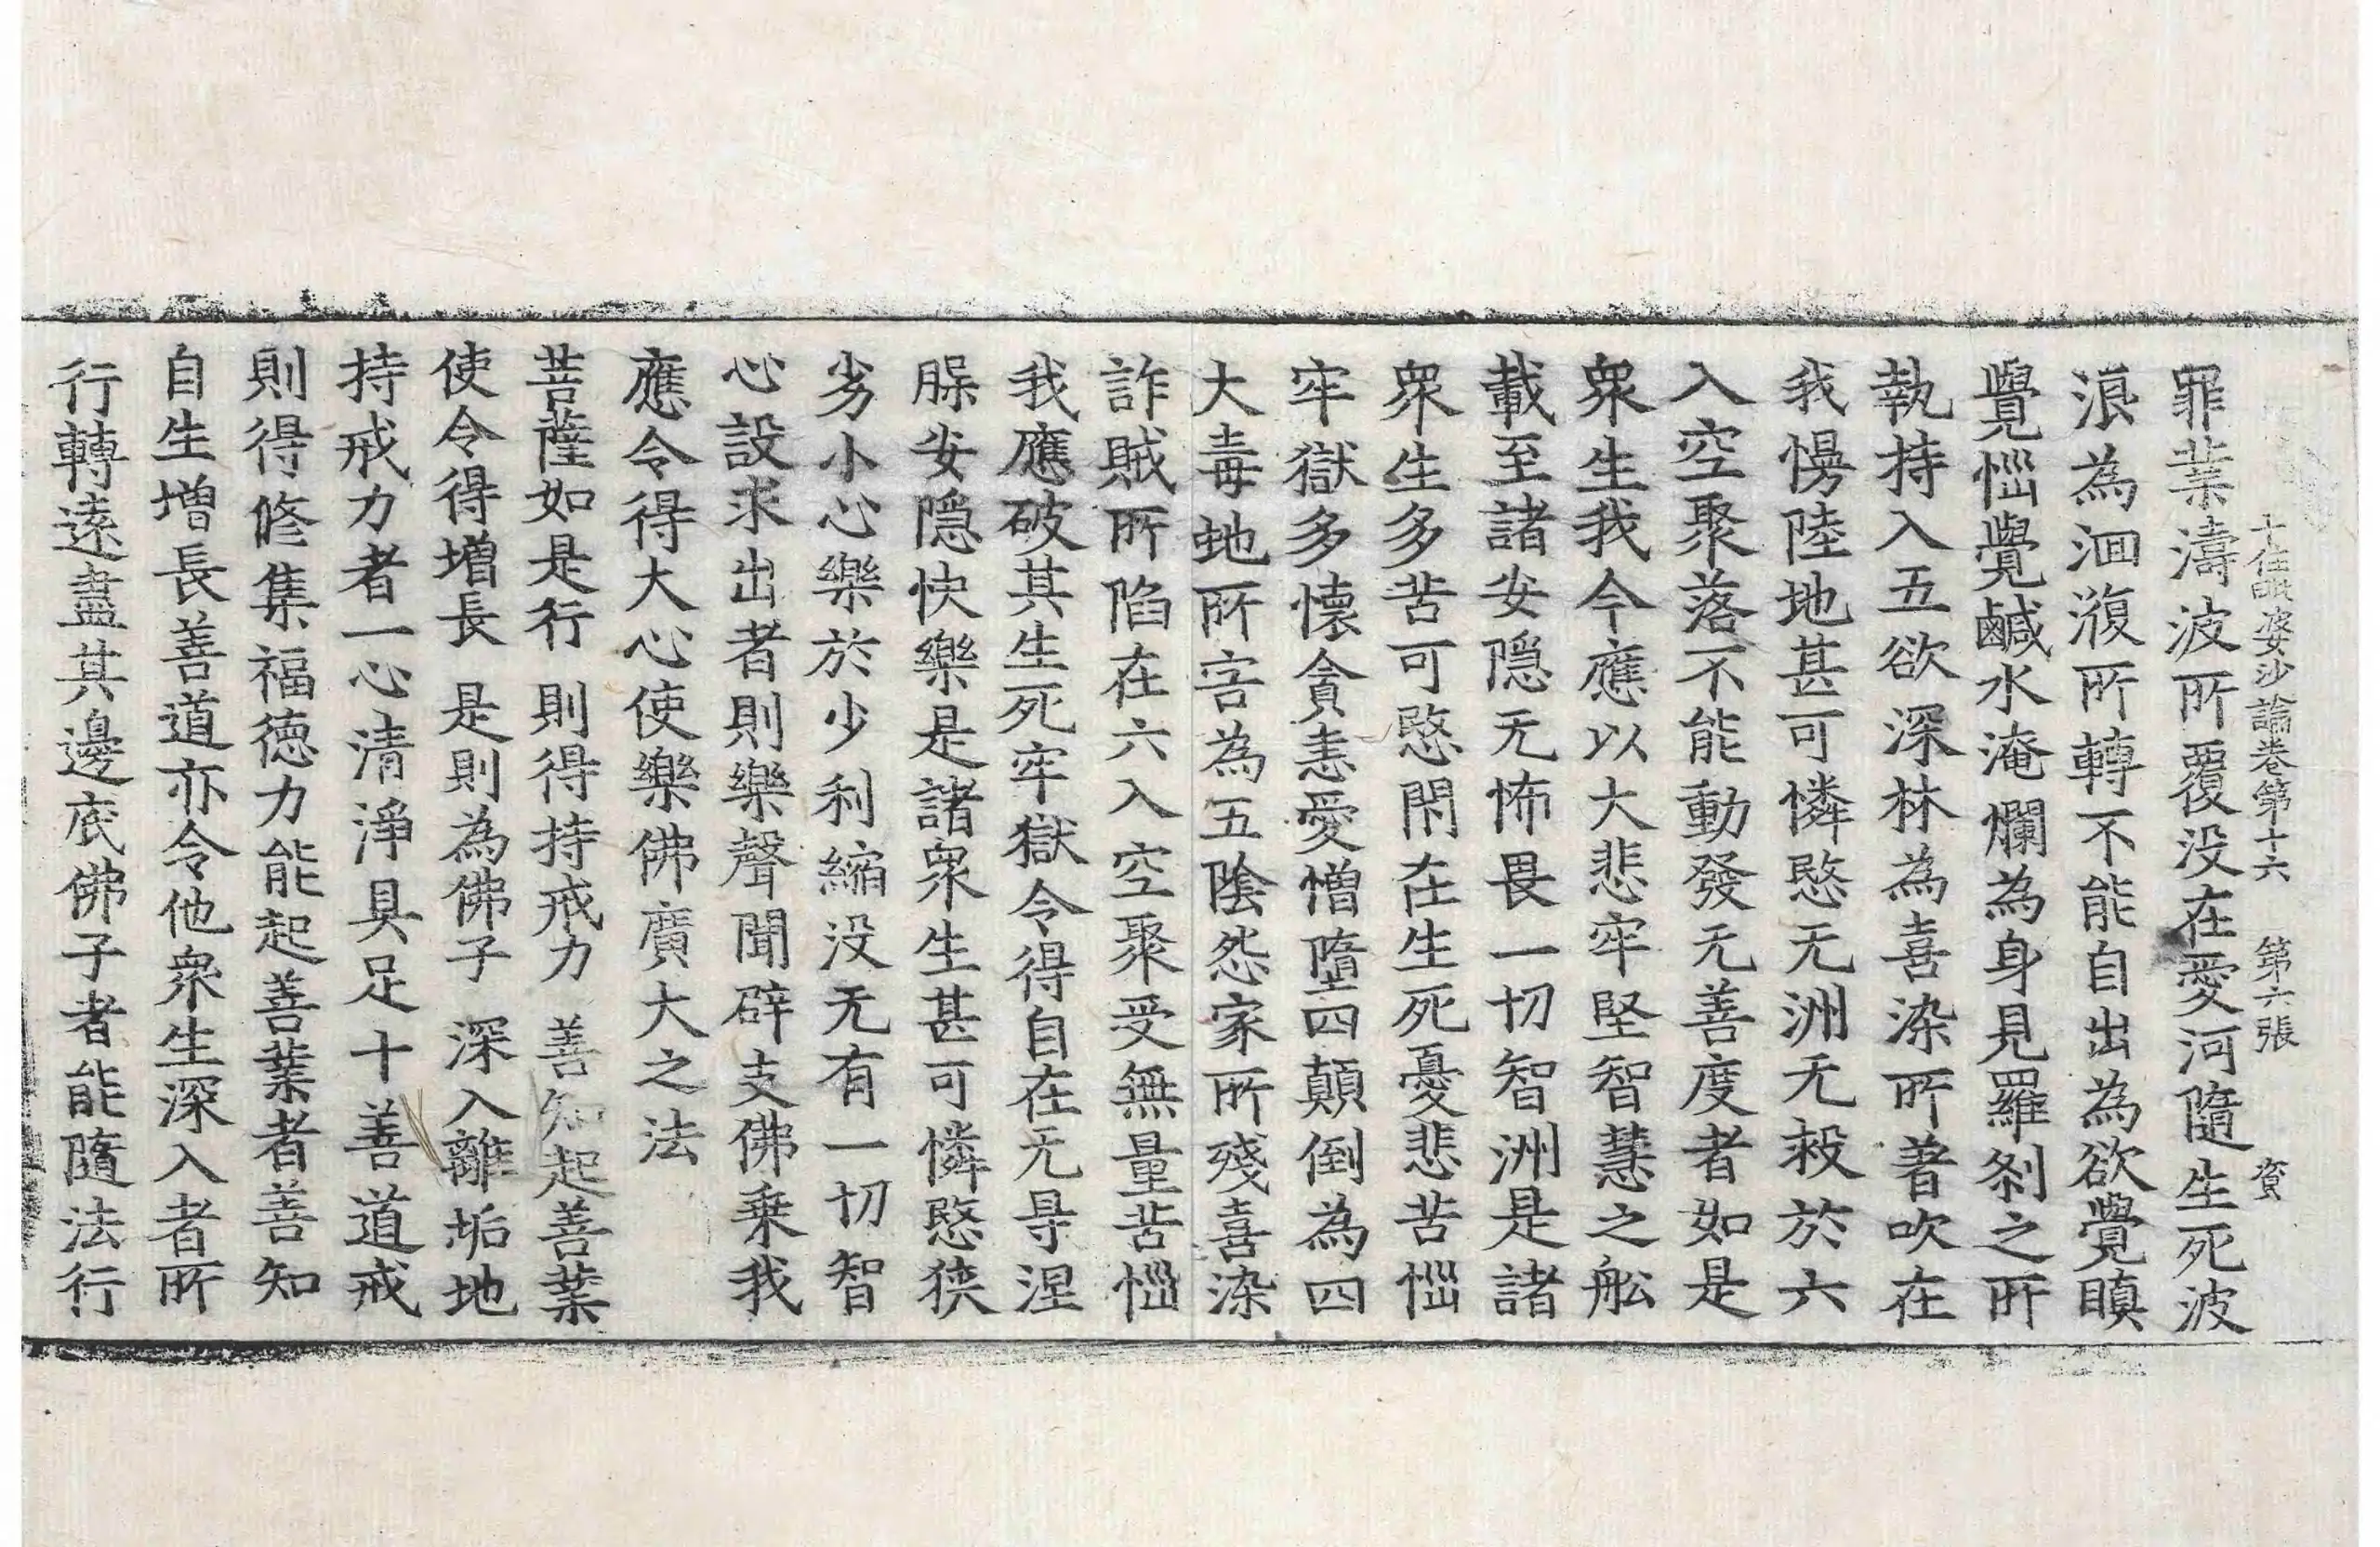 十住毗婆沙論卷第十六 第六張 賓
罪業濤波所覆没在愛河隨生死波
浪為洄澓所轉不能自出為欲覺瞋
覺惱覺鹹水淹爛為身見羅刹之所
執持入五欲深林為喜染所著吹在
我慢陸地甚可憐愍无洲无救於六
入空聚落不能動發无善度者如是
衆生我今應以大悲牢堅智慧之舩
載至諸安隱无怖畏一切智洲是諸
衆生多苦可愍閇在生死憂悲苦惱
牢獄多懷貪恚愛憎墮四顛倒為四
大毒虵所害為五陰怨家所殘喜染
詐賊所陷在六入空聚受無量苦惱
我應破其生死牢獄令得自在无㝵涅
槃安隱快樂是諸衆生甚可憐愍狹
劣小心樂於少利縮没无有一切智
心設求出者則樂聲聞辟支佛乗我
應令得大心使樂佛廣大之法
菩薩如是行 則得持戒力 善知起善業
使令得增長 是則為佛子 深入離垢地
持戒力者一心清淨具足十善道戒
則得修集福德力能起善業者善知
自生增長善道亦令他衆生深入者所
行轉遠盡其邊底佛子者能隨法行